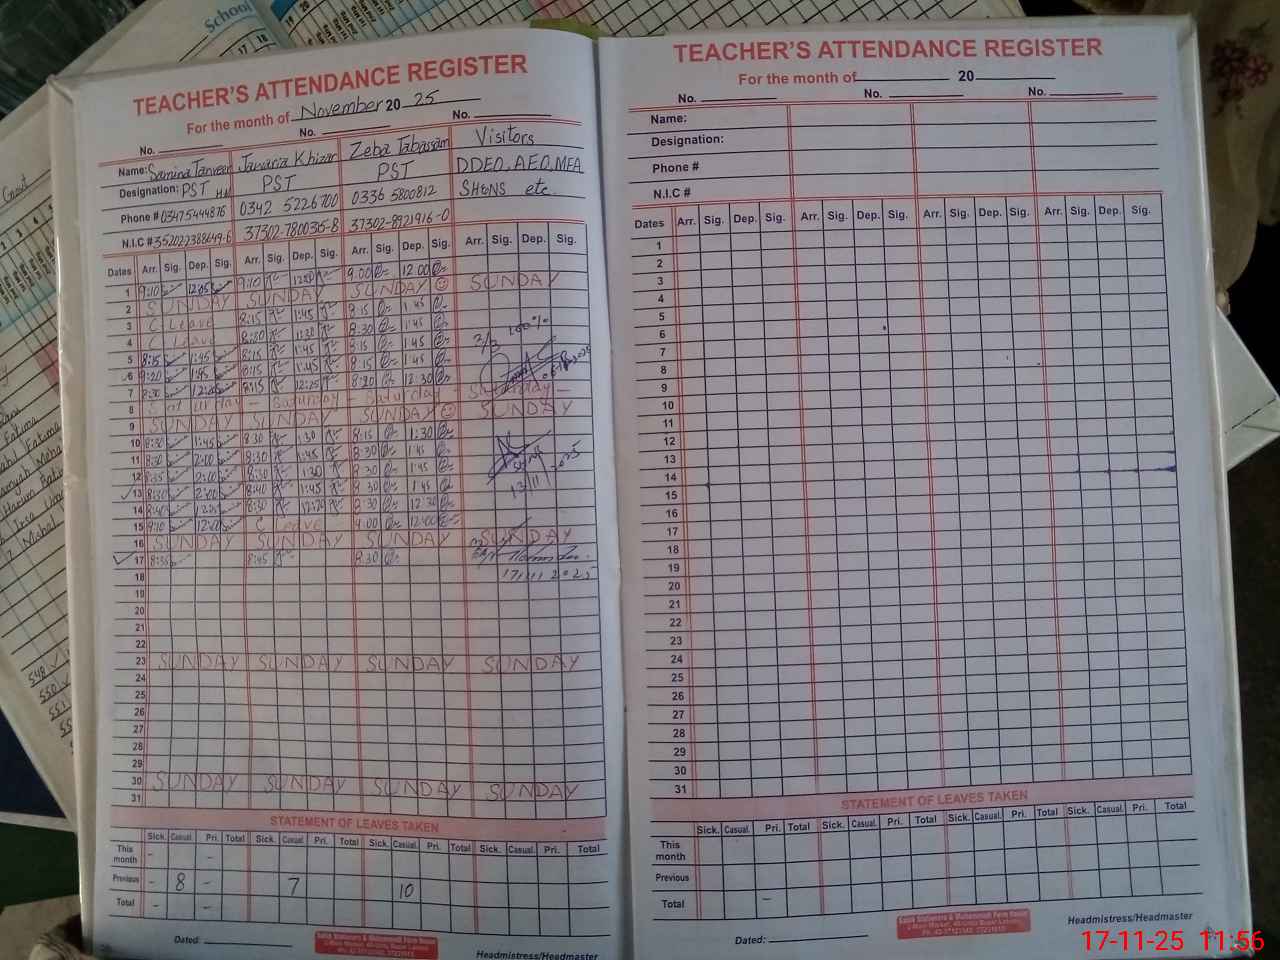 School
17 18
19 20
TEACHER'S ATTENDANCE REGISTER
For the month of November 20 25
No. No. No.
Name: Samina Tanveer Javaria Khizar Zeba Tabassam Visitors
Designation: PST PST PST DDEO, AEO, MEA
Phone # 03475444876 0342 5226700 0336 5800812 etc.
N.I.C # 37302-8921916-0
Dates Arr. Sig. Dep. Sig. Arr. Sig. Dep. Sig. Arr. Sig. Dep. Sig. Arr. Sig. Dep. Sig.
1 9:10 12:05 9:10 9:00 12:00
2 SUNDAY SUNDAY SUNDAY SUNDAY
3 C Leave 8:15 1:45 8:15 1:45
4 C Leave 8:30 1:30 8:30 1:45
5 8:15 1:45 8:15 1:45 8:15 1:45 100%
6 9:20 1:45 1:45 8:15 1:45
7 8:30 8:15 12:25 8:20 12:30
8 Saturday - Saturday - Saturday
9 SUNDAY SUNDAY SUNDAY
10 8:30 1:45 8:30 1:30 8:15 1:30
11 8:30 2:00 8:30 1:45 8:30 1:45
12 8:35 2:00 8:30 1:30 8:30 1:45
13 8:30 2:00 8:40 1:45 8:30 1:45 13/11/2025
14 8:40 8:30 12:20 8:30 12:30
15 9:10 C Leave 9:00 12:00
16 SUNDAY SUNDAY SUNDAY SUNDAY
17 8:35 8:45 8:30
18 17/11/2025
19
20
21
22
23 SUNDAY SUNDAY SUNDAY SUNDAY
24
25
26
27
28
29
30 SUNDAY SUNDAY SUNDAY SUNDAY
31
STATEMENT OF LEAVES TAKEN
Sick. Casual. Pri. Total Sick. Casual. Pri. Total Sick. Casual. Pri. Total Sick. Casual. Pri. Total
This month - -
Previous - 8 - 7 10
Total - -
Dated:
Headmistress/Headmaster
TEACHER'S ATTENDANCE REGISTER
For the month of 20
No. No. No.
Name:
Designation:
Phone #
N.I.C #
Dates Arr. Sig. Dep. Sig. Arr. Sig. Dep. Sig. Arr. Sig. Dep. Sig. Arr. Sig. Dep. Sig.
1
2
3
4
5
6
7
8
9
10
11
12
13
14
15
16
17
18
19
20
21
22
23
24
25
26
27
28
29
30
31
STATEMENT OF LEAVES TAKEN
Sick. Casual. Pri. Total Sick. Casual. Pri. Total Sick. Casual. Pri. Total Sick. Casual. Pri. Total
This month
Previous
Total -
Dated:
Headmistress/Headmaster
17-11-25 11:56